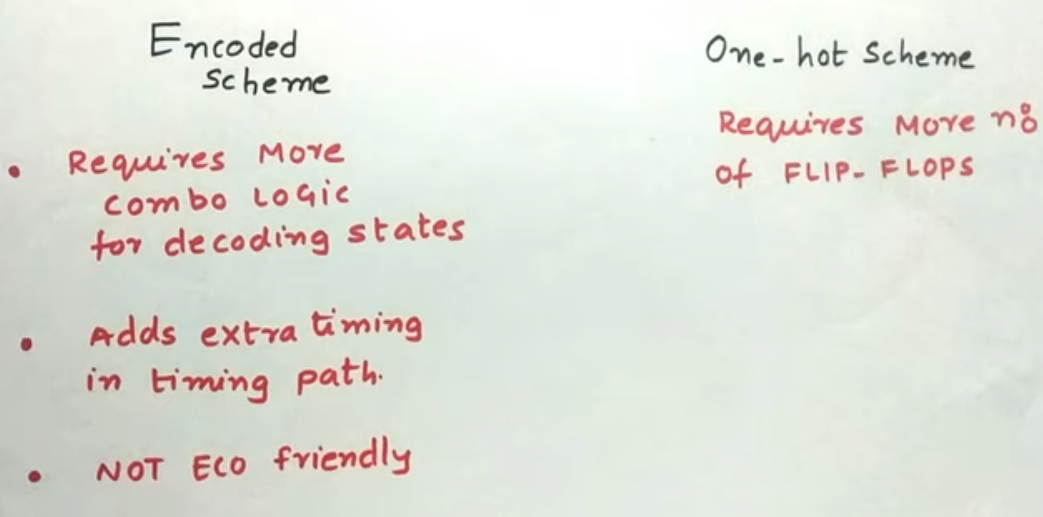 Encoded
Scheme
• Requires More
combo Logic
for decoding states
• Adds extra timing
in timing path.
• NOT ECO friendly
One-hot Scheme
Requires More no
of FLIP-FLOPS